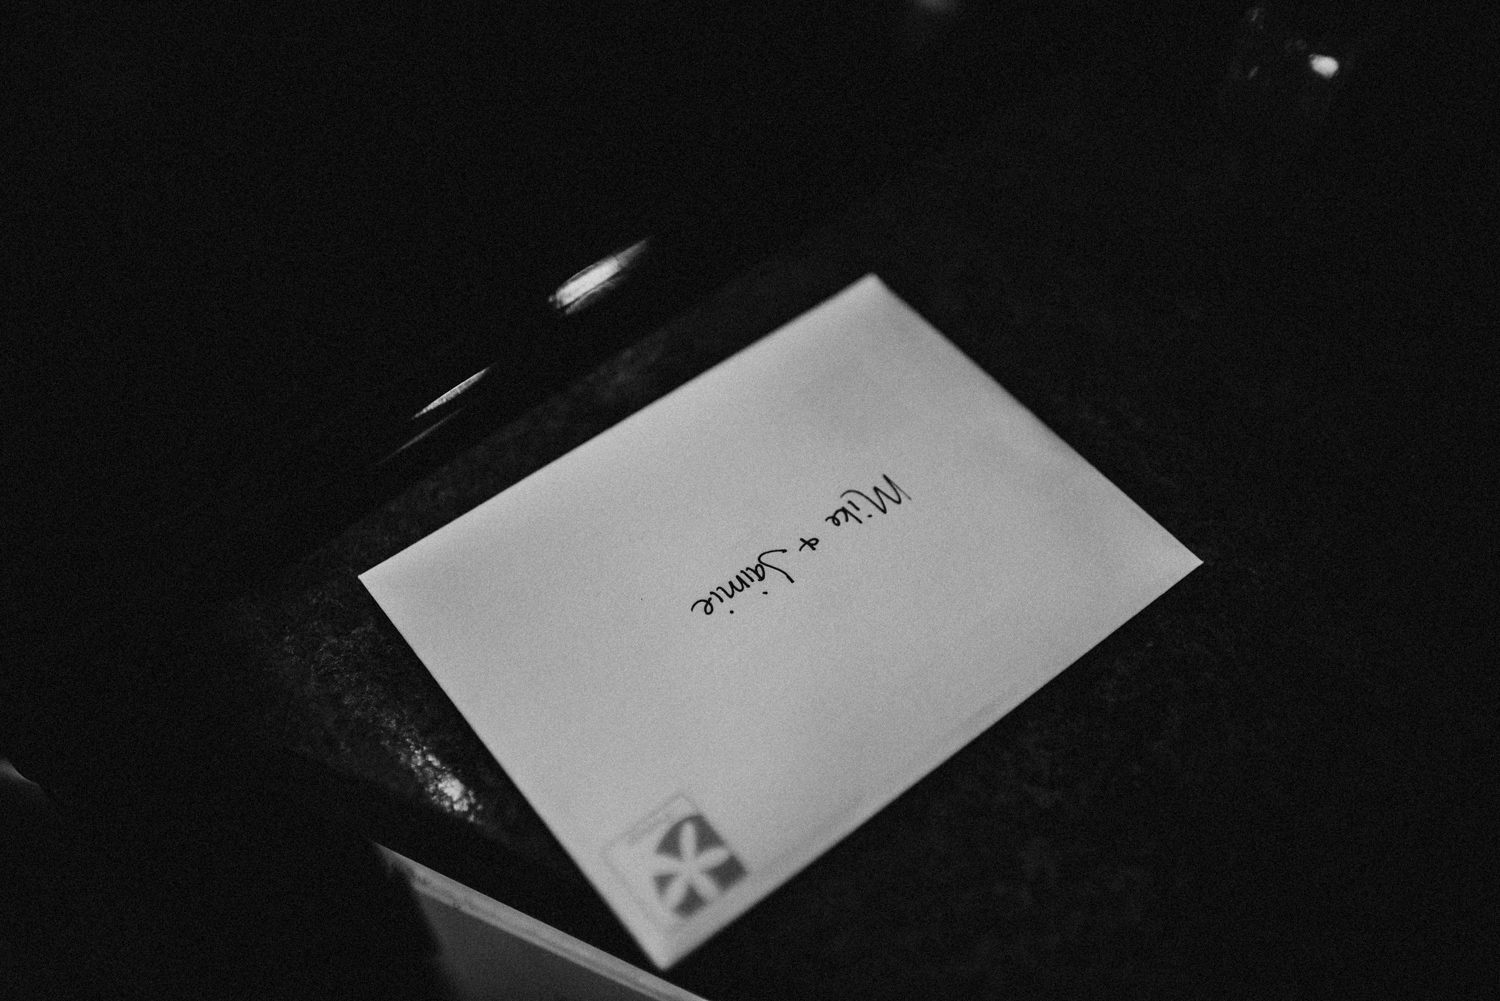 Mike + Jaimie